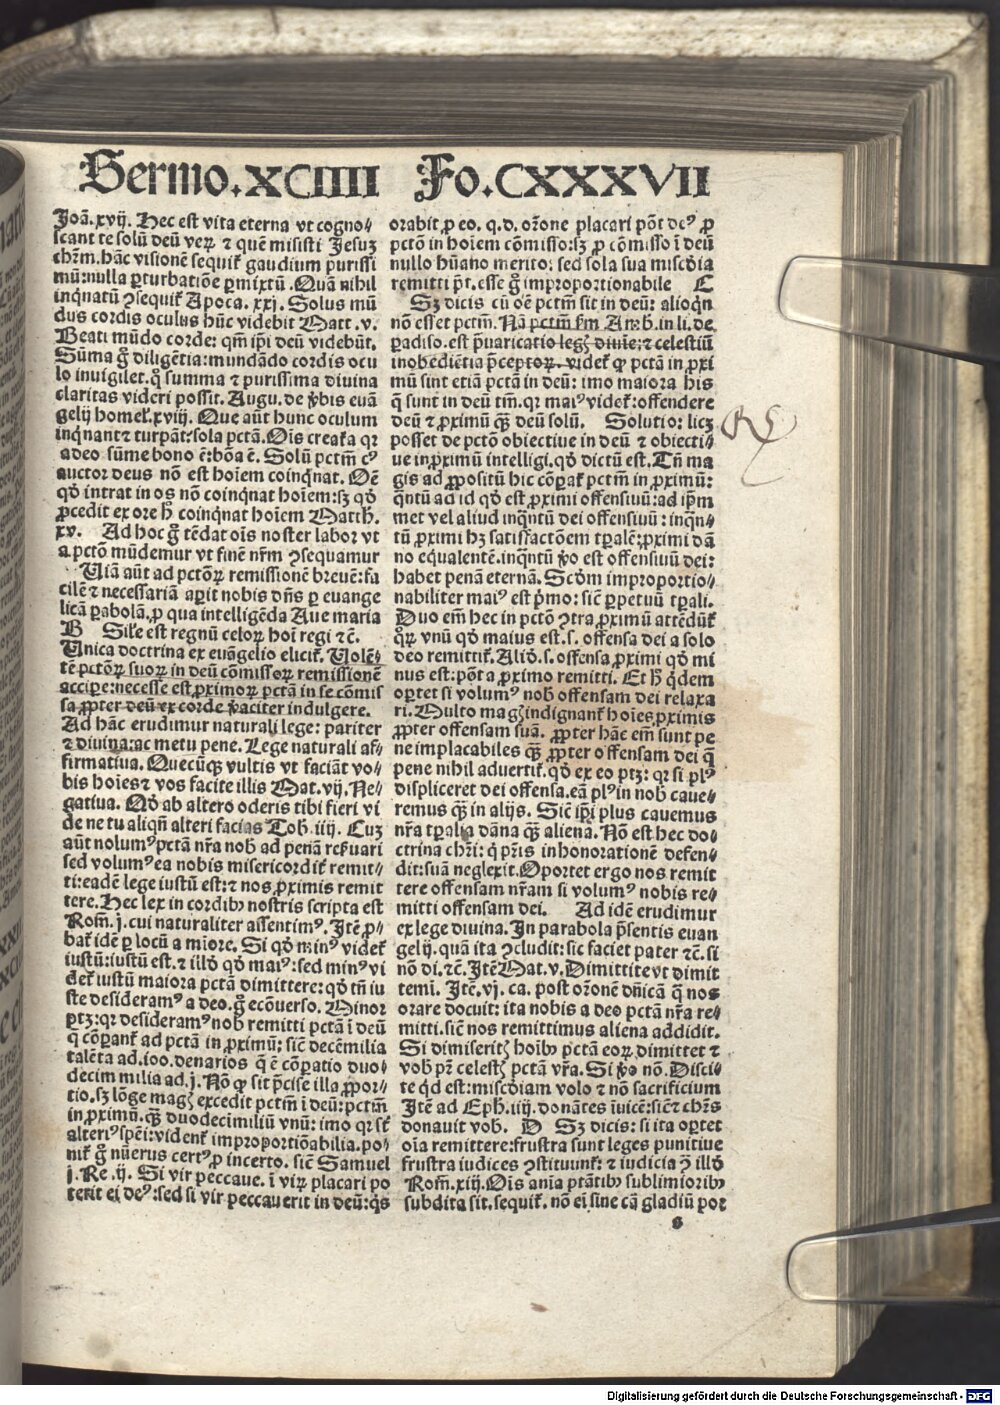 Sermo.XCIIII Fo.CXXXVII
Joā.xvij. Hec est vita eterna vt cogno-
scant te solū deū veꝝ ⁊ quē misisti Jesuꝫ
chr̄m. hāc visionē sequit̉ gaudium purissi
mū: nulla ꝑturbatiōe ꝑmixtū. Quā nihil
inq̄natū ꝯsequit̉ Apoca. xxj. Solus mū
dus cordis oculus hūc videbit Matt. v.
Beati mūdo corde: qm̄ ip̄i deū videbūt.
Sūma g̊ diligētia: mundādo cordis ocu
lo inuigilet. q̄ summa ⁊ purissima diuina
claritas videri possit. Augu. de v̓bis euā
gelij homel̓. xviij. Que aūt hunc oculum
inq̄nant ⁊ turpāt: sola pctā. Ois creat̉a qꝛ
a deo sūme bono ē: bōa ē. Solū pctm̄ cꝰ
auctor deus nō est hoiem coinq̄nat. Oē
qd̓ intrat in os nō coinq̄nat hoiem: sꝫ qd̓
ꝓcedit ex ore h̓ coinq̄nat hoiem Matth.
xv. Ad hoc g̊ tēdat ois noster labor vt
a pctō mūdemur vt finē nr̄m ꝯsequamur
Uiā aūt ad pctōꝝ remissionē breuē: fa
cilē ⁊ necessariā aꝑit nobis dn̄s ꝑ euange
licā ꝑabolā, ꝓ qua intelligēda Aue maria
B Sil̓e est regnū celoꝝ hoi regi ⁊ c̄.
Unica doctrina ex euāgelio elicit̉. Uolē-
tē pctōꝝ suoꝝ in deū cōmissoꝝ remissionē
accipe: necesse est ꝓximoꝝ pctā in se cōmis
sa ꝓpter deū ex corde v̓aciter indulgere.
Ad hāc erudimur naturali lege: pariter
⁊ diuina: ac metu pene. Lege naturali af-
firmatiua. Quecūqꝫ vultis vt faciāt vo-
bis hoies ⁊ vos facite illis Mat. vij. Ne-
gatiua. Qd̓ ab altero oderis tibi fieri vi
de ne tu aliqn̄ alteri facias Tob. iiij. Cuꝫ
aūt nolumꝰ pctā nr̄a nob̓ ad penā reẜuari
sed volumꝰ ea nobis misericordit̉ remit-
ti: eadē lege iustū est: ⁊ nos ꝓximis remit
tere. Hec lex in cordibꝰ nostris scripta est
Rom̄. j. cui naturaliter assentimꝰ. Jtē ꝓ-
bat̉ idē ꝑ locū a miore. Si qd̓ minꝰ videt̉
iustū: iustū est. ⁊ illd̓ qd̓ maiꝰ: sed minꝰ vi
det̉ iustū maiora pctā dimittere: qd̓ tn̄ iu
ste desideramꝰ a deo. g̊ ecōuerso. Minor
ptꝫ: qꝛ desideramꝰ nob̓ remitti pctā ī deū
q̄ cōꝑant̉ ad pctā in ꝓximū: sic̄ decē milia
talēta ad .100. denarios q̄ ē cōꝑatio duo-
decim milia ad .j. Nō ꝙ sit p̄cise illa ꝓpor-
tio. sꝫ lōge magꝭ excedit pctm̄ ī deū: pctm̄
in ꝓximū. qꝫ̄ duodecimiliū vnū: imo qꝛ st̉
alteriꝰ sp̄ei: vident̉ improportiōabilia. po-
nit̉ g̊ nūerus certꝰ ꝓ incerto. sic̄ Samuel
j. Re. ij. Si vir peccaue. ī viꝝ placari po
terit ei deꝰ: sed si vir peccauerit in deū: q̓s
orabit ꝓ eo. q. d. or̄one placari pōt deꝰ ꝓ
pctō in hoiem cōmisso: sꝫ ꝓ cōmisso ī deū
nullo hūano merito: sed sola sua mīcdia
remitti pt̄. esse g̊ improportionabile C
Sꝫ dicis cū oē pctm̄ sit in deū: alioqn̄
nō esset pctm̄. Nā pctm̄ ẜm Amb. in li. de
ꝑadiso. est p̄uaricatio legꝭ diuie: ⁊ celestiū
inobediētia p̄ceptoꝝ. videt̉ ꝙ pctā in ꝓxi
mū sint etiā pctā in deū: imo maiora his
q̄ sunt in deū tm̄. qꝛ maiꝰ videt̉: offendere
deū ⁊ ꝓximū qꝫ̄ deū solū. Solutio: licꝫ
posset de pctō obiectiue in deū ⁊ obiecti-
ue in ꝓximū intelligi. qd̓ dictū est. Tn̄ ma
gis ad ꝓpositū hic cōꝑat̉ pctm̄ in ꝓximū:
q̄ntū ad id qd̓ est ꝓximi offensiuū: ad ip̄m
met vel aliud inq̄ntū dei offensiuū: inq̄n-
tū ꝓximi hꝫ satisfactōem tꝑalē: ꝓximi dā
no equalentē. inq̄ntū v̓o est offensiuū dei:
habet penā eternā. Scd̓m improportio-
nabiliter maiꝰ est p̓mo: sic̄ ꝑpetuū tꝑali.
Duo em̄ hec in pctō ꝯtra ꝓximū attēdūt̉
q̓ꝝ vnū qd̓ maius est. s. offensa dei a solo
deo remittit̉. Aliō. s. offensa ꝓximi qd̓ mi
nus est: pōt a ꝓximo remitti. Et h̓ q̓dem
oꝑtet si volumꝰ nob̓ offensam dei relaxa
ri. Multo magꝭ indignant̉ hoies ꝓximis
ꝓpter offensam suā. ꝓpter hāc em̄ sunt pe
ne implacabiles qꝫ̄ ꝓpter offensam dei q̄
pene nihil aduertit̉. qd̓ ex eo ptꝫ: qꝛ si plꝰ
displiceret dei offensa. eā plꝰ in nob̓ caue-
remus qꝫ̄ in alijs. Sic̄ ip̄i plus cauemus
nr̄a tꝑalia dāna qꝫ̄ aliena. Nō est hec do-
ctrina chr̄i: q̓ pr̄is inhonorationē defen-
dit: suā neglexit. Oportet ergo nos remit
tere offensam nr̄am si volumꝰ nobis re-
mitti offensam dei. Ad idē erudimur
ex lege diuina. In parabola p̄sentis euan
gelij. quā ita ꝯcludit: sic faciet pater ⁊c̄. si
nō di. ⁊c̄. Jtē Mat. v. Dimittite vt dimit
temi. Jtē. vj. ca. post or̄onē dn̄icā q̄ nos
orare docuit: ita nobis a deo pctā nr̄a re-
mitti. sic̄ nos remittimus aliena addidit.
Si dimiseritꝭ hoibꝰ pctā eoꝝ dimittet ⁊
vob̓ pr̄ celestꝭ pctā vr̄a. Si v̓o nō. Disci-
te q̓d est: mīcdiam volo ⁊ nō sacrificium
Jtē ad Eph. iiij. donātes īuicē: sic̄ ⁊ chr̄s
donauit vob̓. D Sꝫ dicis: si ita oꝑtet
oīa remittere: frustra sunt leges punitiue
frustra iudices ꝯstituunt̉: ⁊ iudicia ꝯ illd̓
Rom̄. xiij. Ois anīa ptātibꝰ sublimioribꝰ
subdita sit. sequit̉. nō ei̓ sine cā gladiū por
s
Digitalisierung gefördert durch die Deutsche Forschungsgemeinschaft - DFG